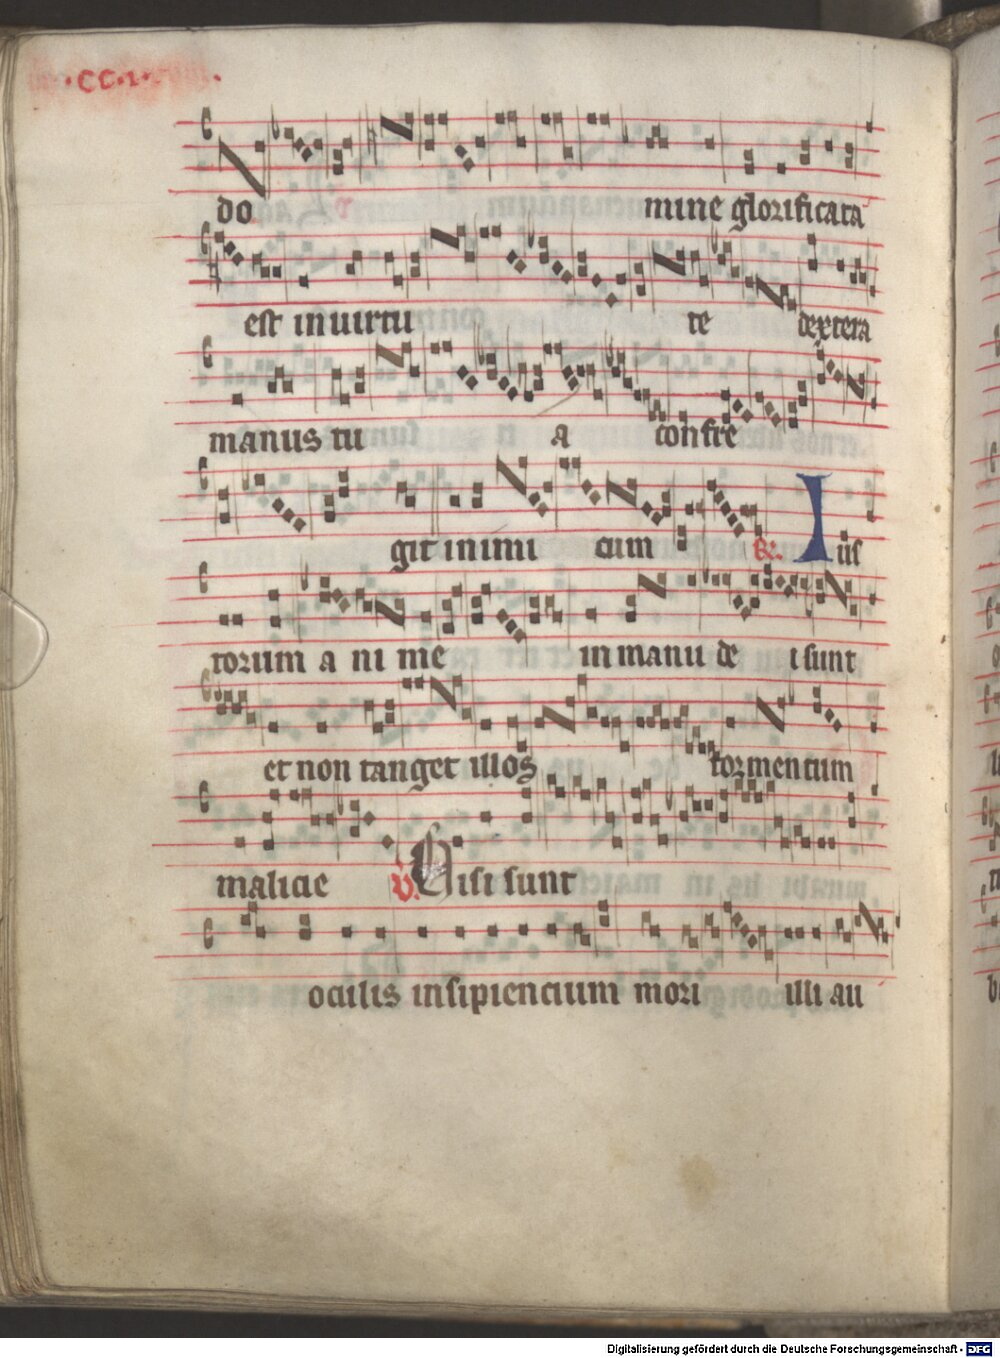 ·cc·1·
do mine glorificata
est in uirtu te dextera
manus tu a confre
git inimi cum R. Ius
torum a ni me in manu de i sunt
et non tanget illos tormentum
malicie V. Uisi sunt
oculis insipiencium mori illi au
Digitalisierung gefördert durch die Deutsche Forschungsgemeinschaft - DFG